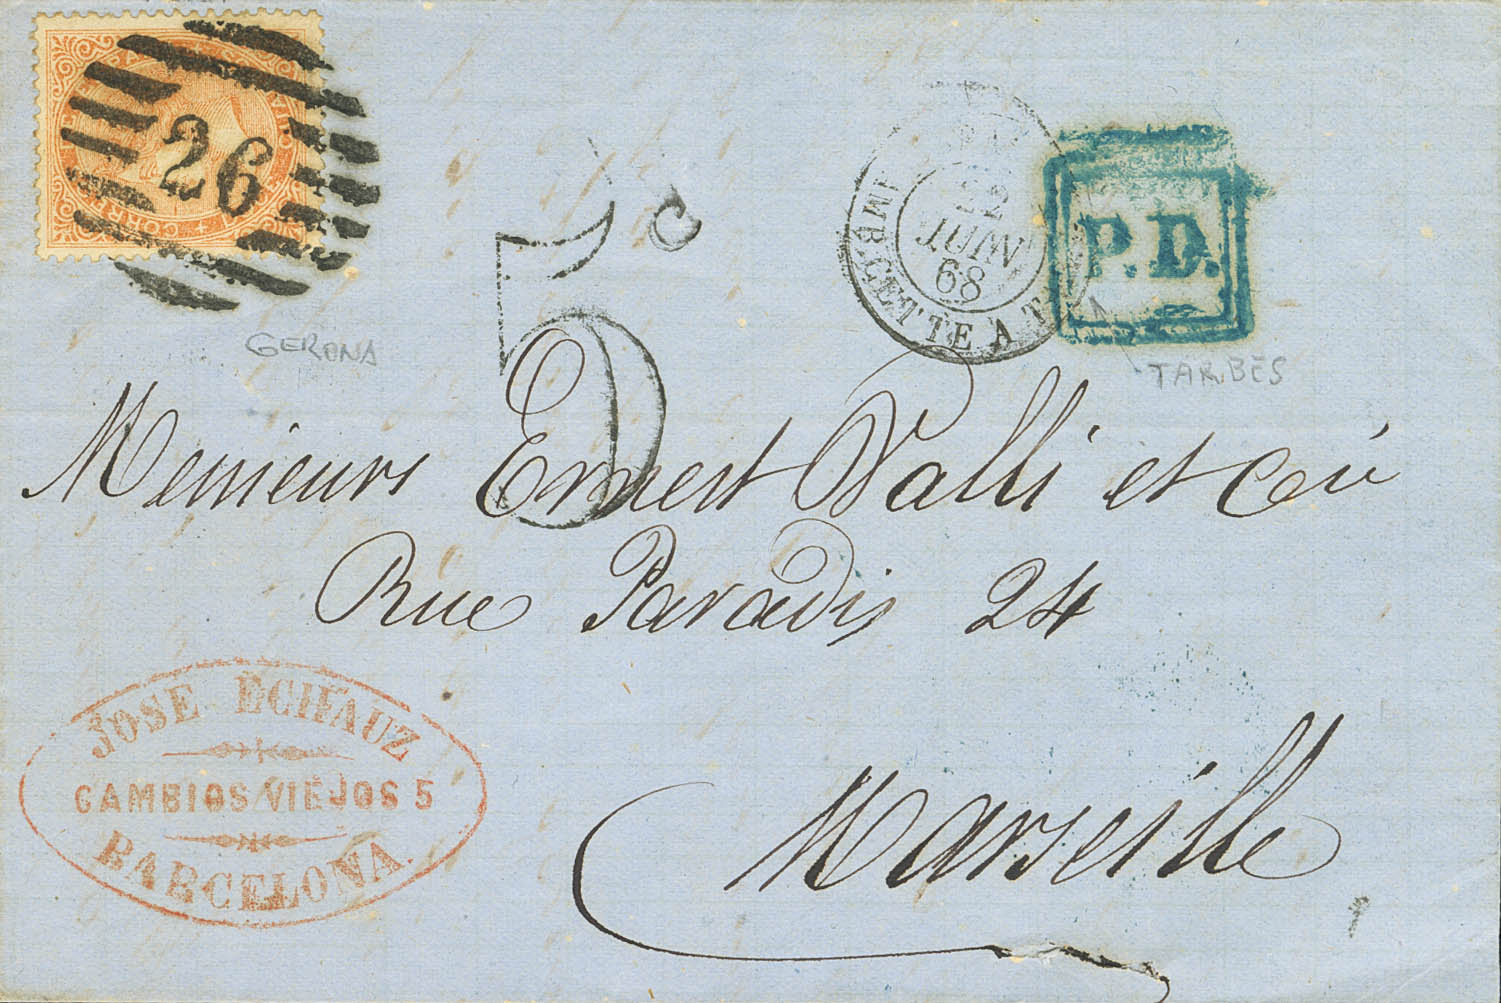 26
GERONA
5 c
22
JUIN
68
AMB. CETTE A T
P.D.
TARBES
Messieurs Ernest Valli et Cie
Rue Paradis 24
Marseille
JOSE ECHAUZ
CAMBIOS VIEJOS 5
BARCELONA.